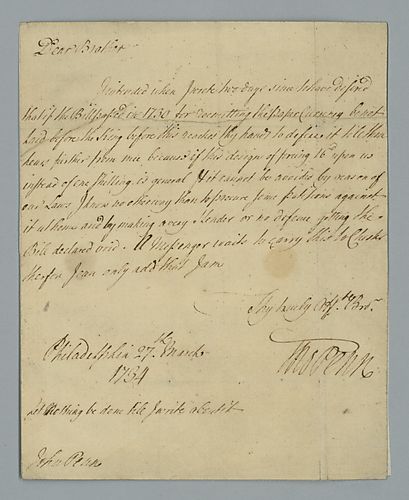 Dear Brother
I intended when I wrote two days since to have desired
that if the Bill passed in 1730 for reemitting the Paper Currency be not
laid before the King before this reaches thy hands to defer it till thou
hears further from mee because if this design of forcing it upon us
instead of one Shilling, is general & it cannot be avoided by reason of
our Laws I know no other way than to procure some petitions against
it at home and by making a very slender or no defence getting the
Bill declared void. A Messenger waits to carry this to Chester
therefore I can only add that I am
Thy truly Aff:te Bror.
Philadelphia 27th March
1734
Tho Penn
let nothing be done till I write about it
John Penn